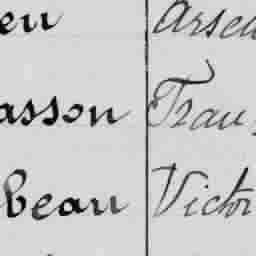 en Arsen
asson Fran
beau Victor